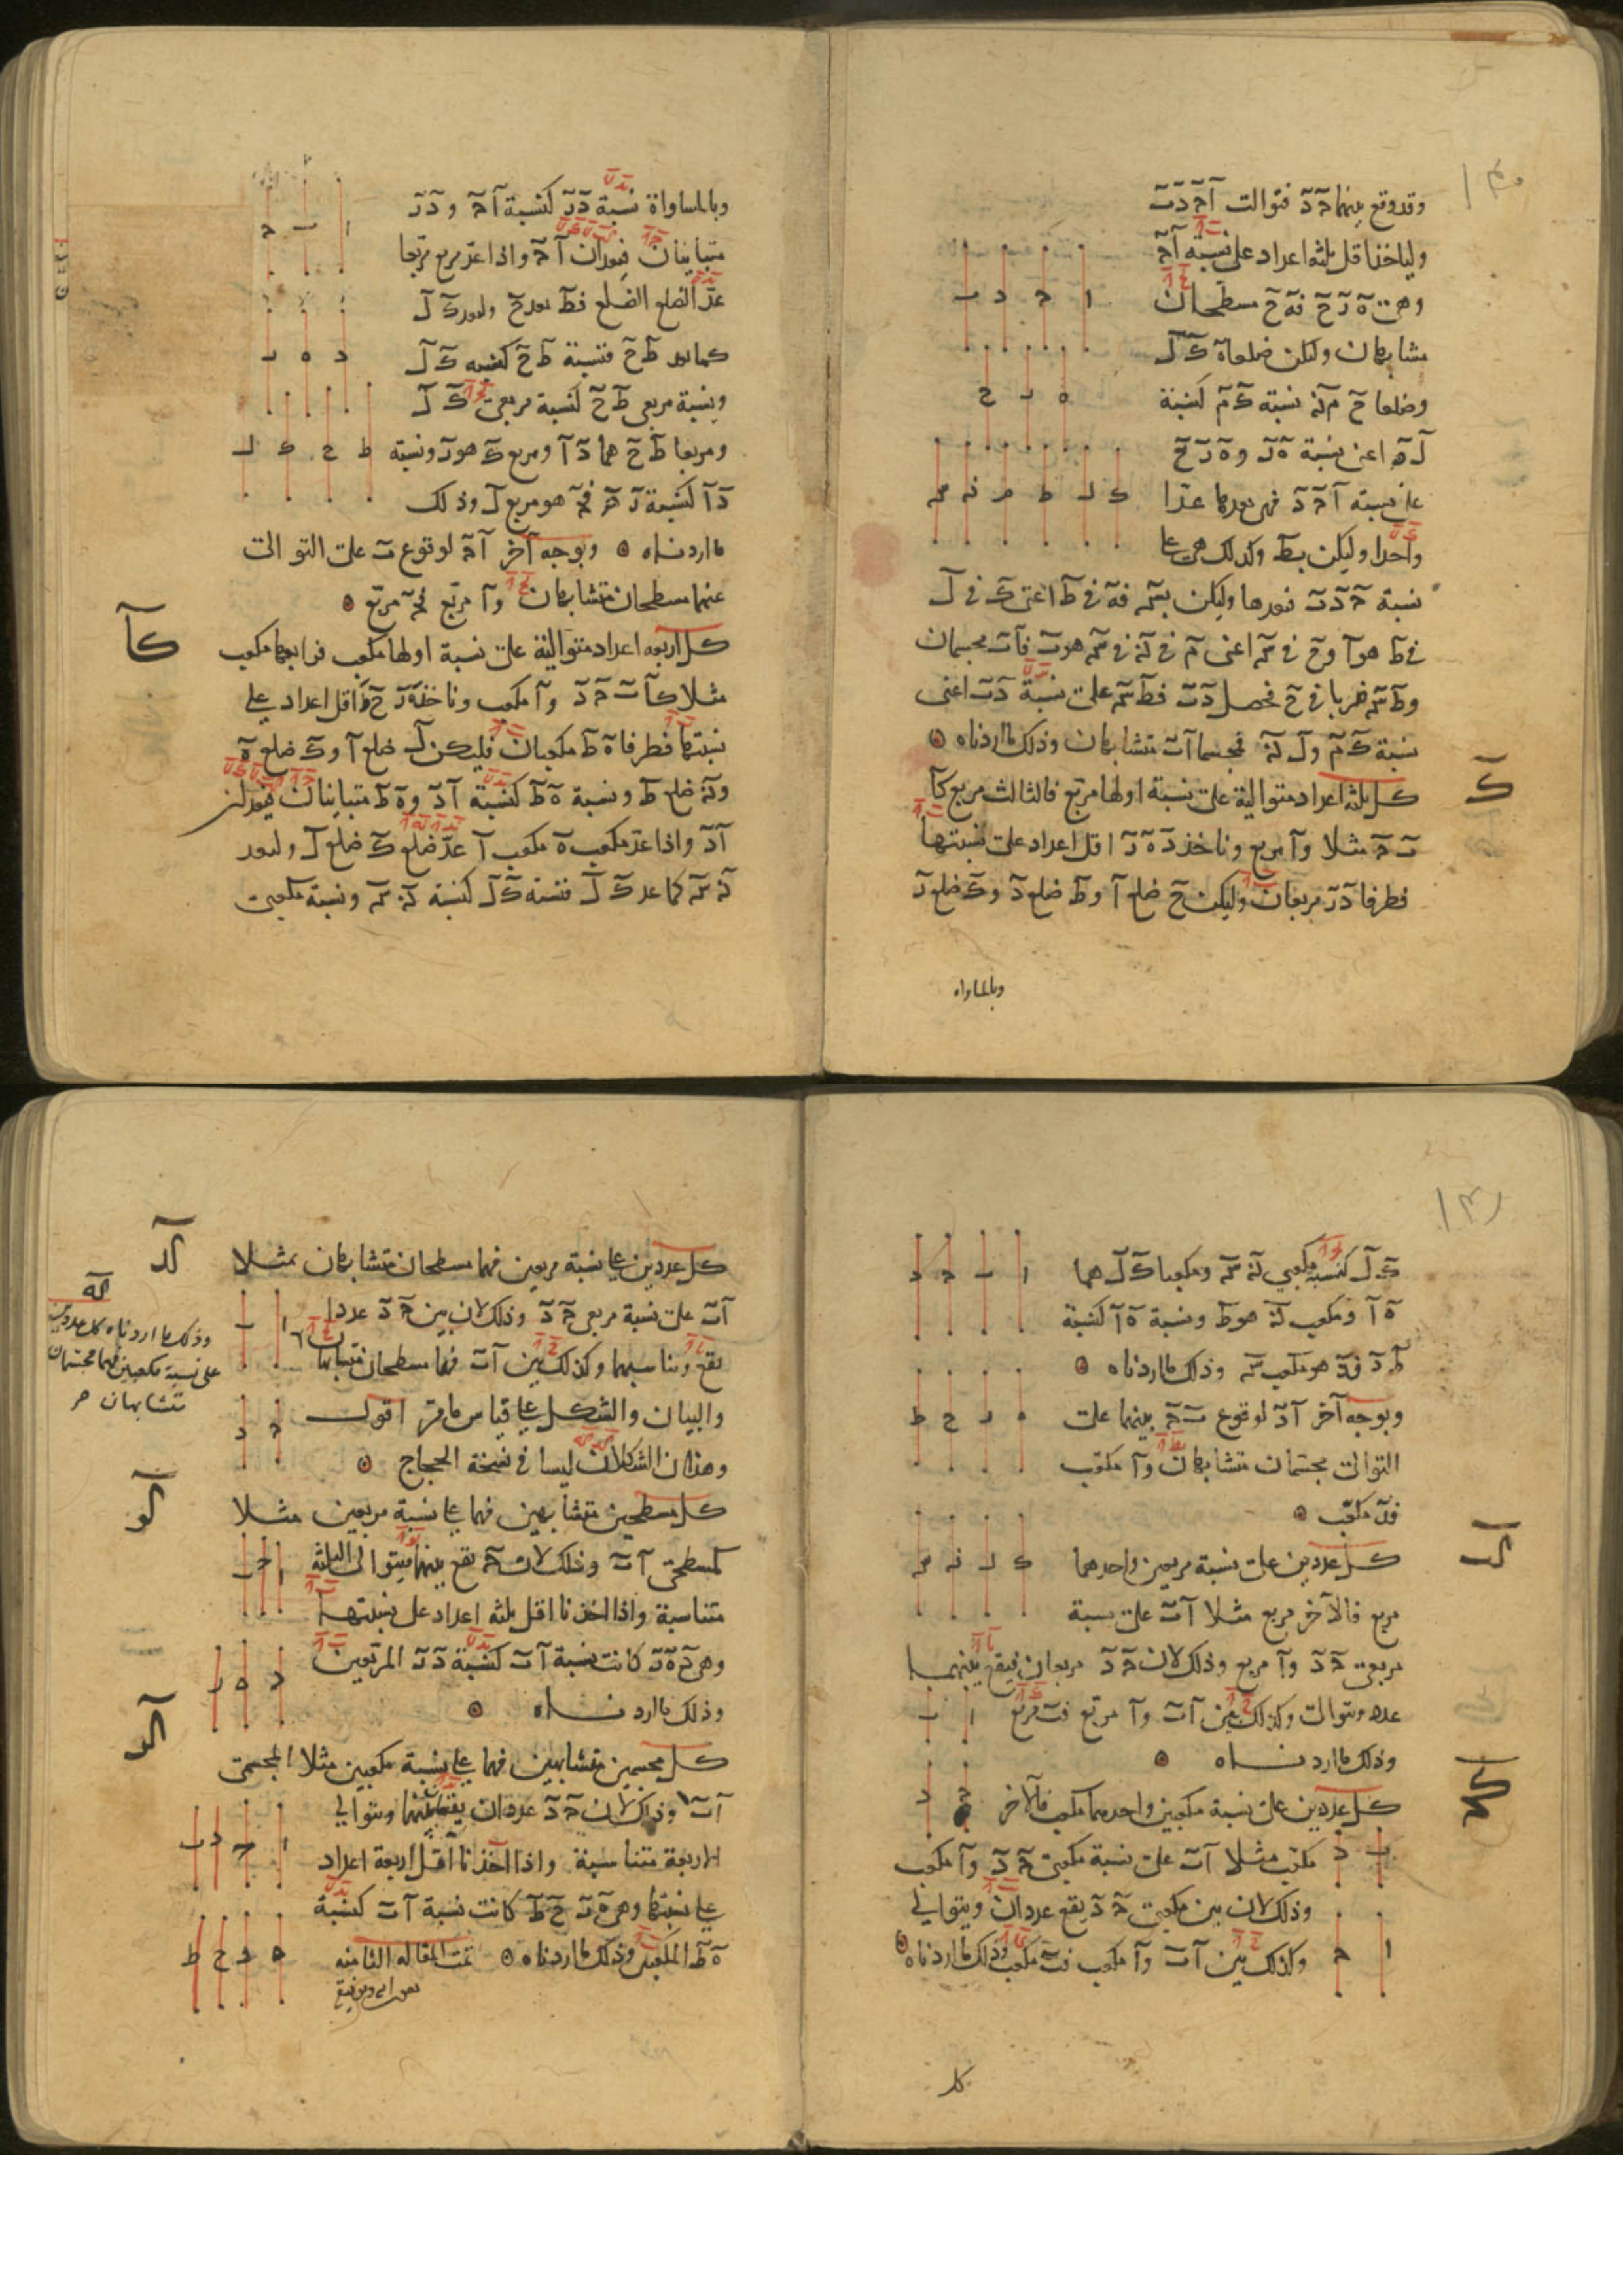 وقد وقع بينهما حَ دَ فتوالت آ حَ دَ بَ
ولناخذ اقل ثلثة اعداد على نسبة آ حَ
وهى هَ زَ حَ فهَ حَ مسطحان
متشابهان وليكن ضلعا هَ كَ لَ
وضلعا حَ مَ نَ نسبة كَ مَ كنسبة
لَ نَ اعنى نسبة هَ زَ و هَ زَ حَ
على نسبة آ حَ دَ فهى يعدها عدا
واحدا وليكن بطَ وكذلك هى على
نسبة حَ دَ بَ فتعدها وليكن بسَ فهَ فى طَ اعنى كَ فى لَ
فى طَ هو آ وحَ فى سَ اعنى مَ فى نَ فى سَ هو بَ فآ بَ مجسمان
وطَ سَ ضربا فى حَ فحصل دَ بَ فطَ سَ على نسبة دَ بَ اعنى
نسبة كَ مَ و لَ نَ فمجسما آ بَ متشابهان وذلك ما اردناه
كَ
كل ثلثة اعداد متوالية على نسبة اولها مربع فالثالث مربع كآ
بَ حَ مثلا وآ مربع وناخذ دَ هَ زَ اقل اعداد على نسبتها
فطرفا دَ زَ مربعان وليكن حَ ضلع آ وطَ ضلع دَ وكَ ضلع زَ
وبالمساواه
وبالمساواة نسبة دَ زَ كنسبة آ حَ و دَ زَ
متباينان فيعدان آ حَ واذا عد مربع مربعا
عد الضلع الضلع فطَ يعد حَ وليعد كَ لَ
كما يعد طَ حَ فنسبة طَ حَ كنسبة كَ لَ
ونسبة مربعى طَ حَ كنسبة مربعى كَ لَ
ومربعا طَ حَ هما دَ آ ومربع كَ هو زَ ونسبة
دَ آ كنسبة زَ حَ فحَ هو مربع لَ وذلك
ما اردناه وبوجه آخر آ حَ لوقوع بَ على التوالى
بينهما مسطحان متشابهان وآ مربع فحَ مربع
كآ
كل اربعة اعداد متوالية على نسبة اولها مكعب فرابعها مكعب
مثلا كآ بَ حَ دَ وآ مكعب وناخذ هَ زَ حَ طَ اقل اعداد على
نسبتها فطرفا هَ طَ مكعبان فليكن لَ ضلع آ وكَ ضلع هَ
ونَ ضلع طَ ونسبة هَ طَ كنسبة آ دَ وهَ طَ متباينان فيعدان
آ دَ واذا عد مكعب هَ مكعب آ عد ضلع كَ ضلع لَ وليعد
نَ سَ كما عد كَ لَ فنسبة كَ لَ كنسبة نَ سَ ونسبة مكعبى
كَ لَ كنسبة مكعبى نَ سَ ومكعبا كَ لَ هما
هَ آ ومكعب نَ هو طَ ونسبة هَ آ كنسبة
طَ دَ فدَ هو مكعب سَ وذلك ما اردناه
وبوجه آخر آ دَ لوقوع بَ حَ بينهما على
التوالى مجسمان متشابهان وآ مكعب
فدَ مكعب
كب
كل عددين على نسبة مربعين واحدهما
مربع فالآخر مربع مثلا آ بَ على نسبة
مربعى حَ دَ وآ مربع وذلك لان حَ دَ مربعان فيقع بينهما
عدد ويتوالى وكذلك بين آ بَ وآ مربع فبَ مربع
وذلك ما اردناه
كج
كل عددين على نسبة مكعبين واحدهما مكعب فالآخر
مكعب مثلا آ بَ على نسبة مكعبى حَ دَ وآ مكعب
وذلك لان بين مكعبى حَ دَ يقع عددان ويتوالى
وكذلك بين آ بَ وآ مكعب فبَ مكعب وذلك ما اردناه
كل
كد
كل عددين على نسبة مربعين فهما مسطحان متشابهان مثلا
آ بَ على نسبة مربعى حَ دَ وذلك لان بين حَ دَ عددا
يقع ويناسبهما وكذلك بين آ بَ فهما مسطحان متشابهان
كه
وذلك ما اردناه كل عددين
على نسبة مكعبين فهما مجسمان
متشابهان
والبيان والشكل على قياس ما مر اقول
وهذان الشكلان ليسا فى نسخة الحجاج
كو
كل مسطحين متشابهين فهما على نسبة مربعين مثلا
كمسطحى آ بَ وذلك لان حَ يقع بينهما فيتوالى الثلثة
متناسبة واذا اخذنا اقل ثلثة اعداد على نسبتها
وهى دَ هَ زَ كانت نسبة آ بَ كنسبة دَ زَ المربعين
وذلك ما اردناه
كز
كل مجسمين متشابهين فهما على نسبة مكعبين مثلا كمجسمى
آ بَ وذلك لان حَ دَ عددان يقعان بينهما ويتوالى
الاربعة متناسبة واذا اخذنا اقل اربعة اعداد
على نسبتها وهى هَ زَ حَ طَ كانت نسبة آ بَ كنسبة
هَ طَ المكعبين وذلك ما اردناه تمت المقالة الثامنه